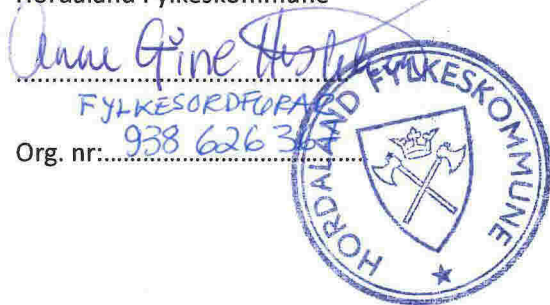 Hordaland Fylkeskommune
Anne Gine
FYLKESORDFØRAR
Org. nr: 938 626 367
HORDALAND FYLKESKOMMUNE